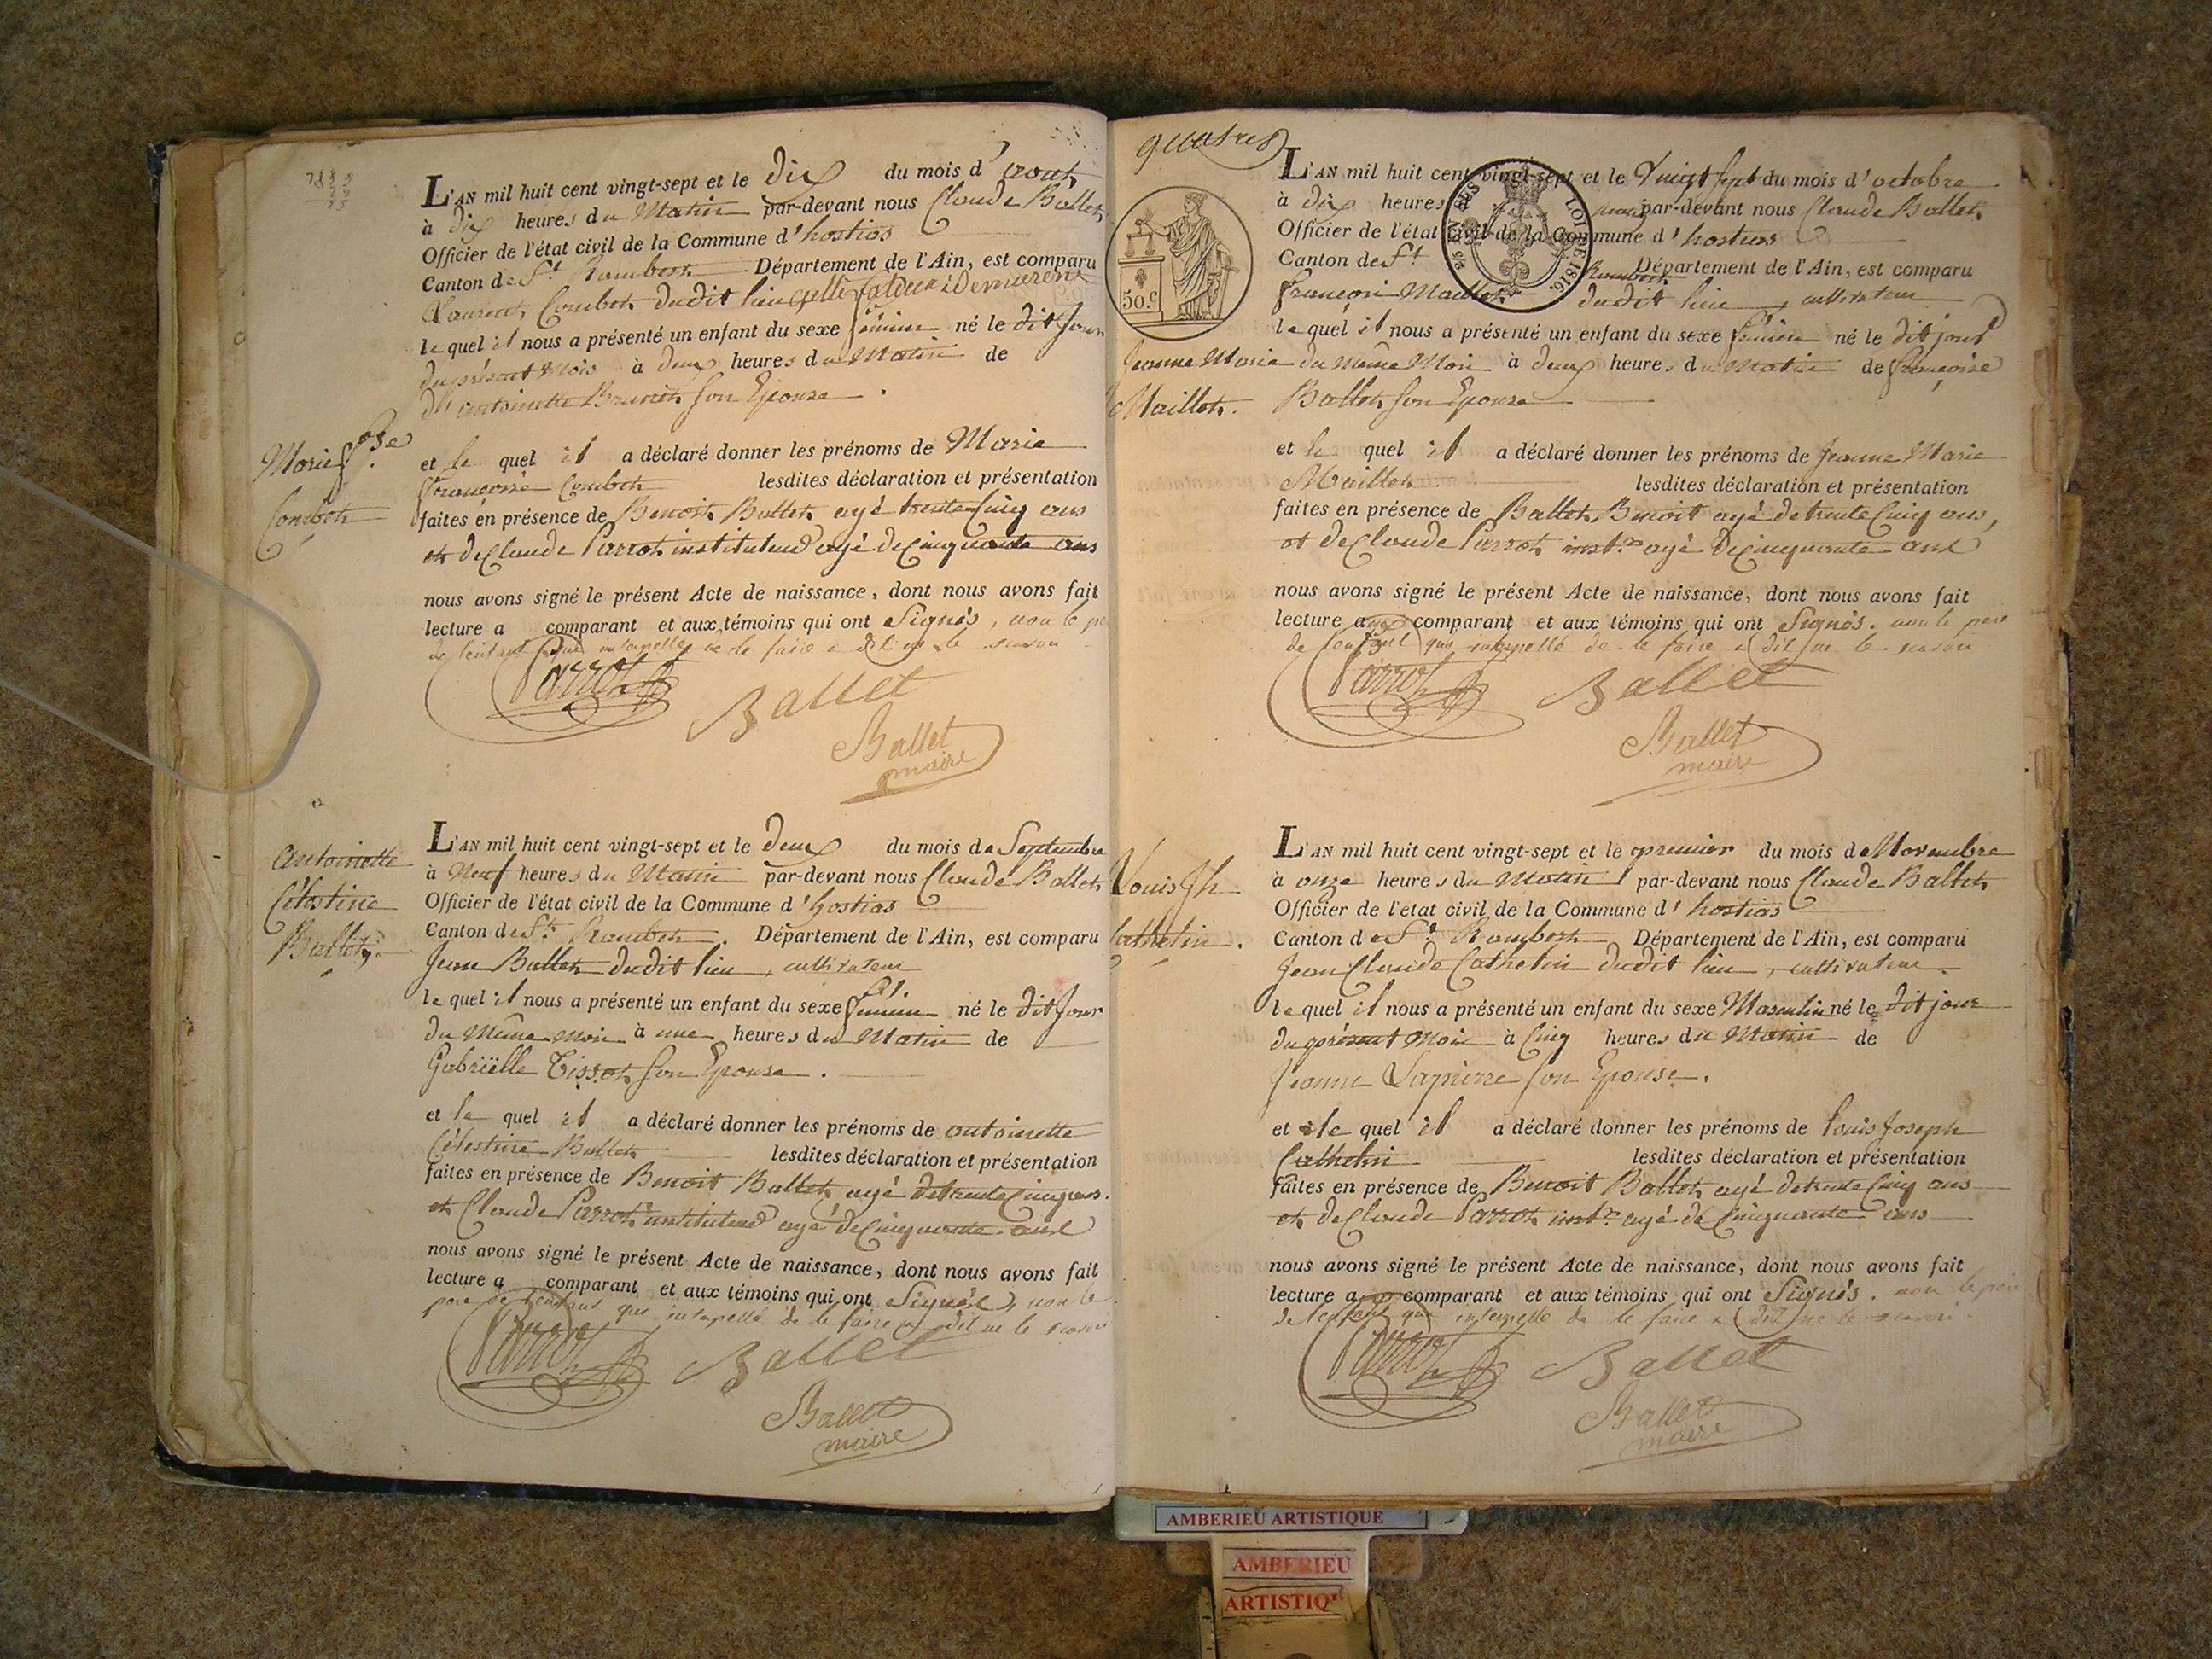 L'AN mil huit cent vingt-sept et le dix du mois d' aout
à dix heures du Matin par-devant nous Claude Ballet
Officier de l'état civil de la Commune d' hostias
Canton de St Rambert Département de l'Ain, est comparu
Laurent Combet dudit lieu
le quel il nous a présenté un enfant du sexe féminin né le dit Jour
du présent Mois à deux heures du Matin de
antoinette son Epouse
Marie fse
Combet
et le quel il a déclaré donner les prénoms de Marie
françoise Combet lesdites déclaration et présentation
faites en présence de Benoit Ballet agé trente Cinq ans
et de Claude Parrot instituteur agé de Cinquante ans
nous avons signé le présent Acte de naissance, dont nous avons fait
lecture a comparant et aux témoins qui ont Signés, non le pe
de lenfant interpellé de le faire a dit ne le savoir
Parrot
Ballet
Ballet
maire
Antoinette
Célestine
Ballet
L'AN mil huit cent vingt-sept et le deux du mois de Septembre
à Neuf heures du Matin par-devant nous Claude Ballet
Officier de l'état civil de la Commune d' hostias
Canton de St Rambert. Département de l'Ain, est comparu
Jean Ballet dudit lieu, cultivateur
le quel il nous a présenté un enfant du sexe féminin né le dit Jour
du Même moi à une heures du Matin de
Gabriëlle Tissot son Epouse.
et le quel il a déclaré donner les prénoms de antoinette
Célestine Ballet lesdites déclaration et présentation
faites en présence de Benoit Ballet agé de trente Cinq ans.
et Claude Parrot instituteur agé de Cinquante ans
nous avons signé le présent Acte de naissance, dont nous avons fait
lecture a comparant et aux témoins qui ont Signés, non le
pere de lenfant que interpellé de le faire a dit ne le savoir
Parrot
Ballet
Ballet
maire
quatre
50.c
LOI DE 1816.
L'AN mil huit cent vingt-sept et le Vingt sept du mois d' octobre
à dix heures par-devant nous Claude Ballet
Officier de l'état civil de la Commune d' hostias
Canton de St Rambert Département de l'Ain, est comparu
françois Maillet dudit lieu, cultivateur
le quel il nous a présenté un enfant du sexe féminin né le dit jour
Jeanne Marie
Maillet.
du Même Moi à deux heures du Matin de françoise
Ballet son Epouse
et le quel il a déclaré donner les prénoms de Jeanne Marie
Maillet lesdites déclaration et présentation
faites en présence de Ballet Benoit agé de trente Cinq ans,
et de Claude Parrot instr agé de Cinquante ans
nous avons signé le présent Acte de naissance, dont nous avons fait
lecture aux comparant et aux témoins qui ont Signés. non le pere
de lenfant que interpellé de le faire a dit ne le savoir
Parrot
Ballet
Ballet
maire
Louis Jh
Cathelin.
L'AN mil huit cent vingt-sept et le premier du mois de Novembre
à onze heures du Matin par-devant nous Claude Ballet
Officier de l'etat civil de la Commune d' hostias
Canton de St Rambert Département de l'Ain, est comparu
Jean Claude Cathelin dudit lieu, cultivateur
le quel il nous a présenté un enfant du sexe Masculin né le dit jour
du présent Moi à Cinq heures du Matin de
Jeanne Lapierre son Epouse.
et le quel il a déclaré donner les prénoms de Louis Joseph
Cathelin lesdites déclaration et présentation
faites en présence de Benoit Ballet agé de trente Cinq ans
et de Claude Parrot instr agé de Cinquante ans
nous avons signé le présent Acte de naissance, dont nous avons fait
lecture a comparant et aux témoins qui ont Signés. non le pere
de lenfant que interpellé de le faire a dit ne le savoir.
Parrot
Ballet
Ballet
maire
AMBERIEU ARTISTIQUE
AMBERIEU
ARTISTIQ